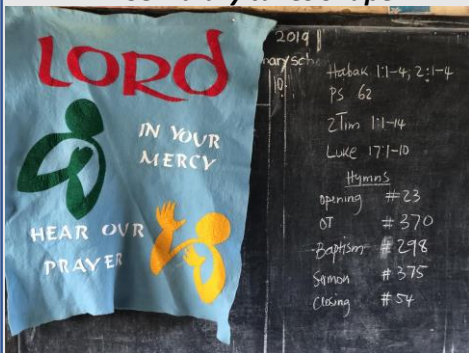 LORD
IN YOUR
MERCY
HEAR OUR
PRAYER
2019
10
Habak 1:1-4; 2:1-4
PS 62
2Tim 1:1-14
Luke 17:1-10
Hymns
opening #23
OT #370
Baptism #298
Sermon #375
Closing #54